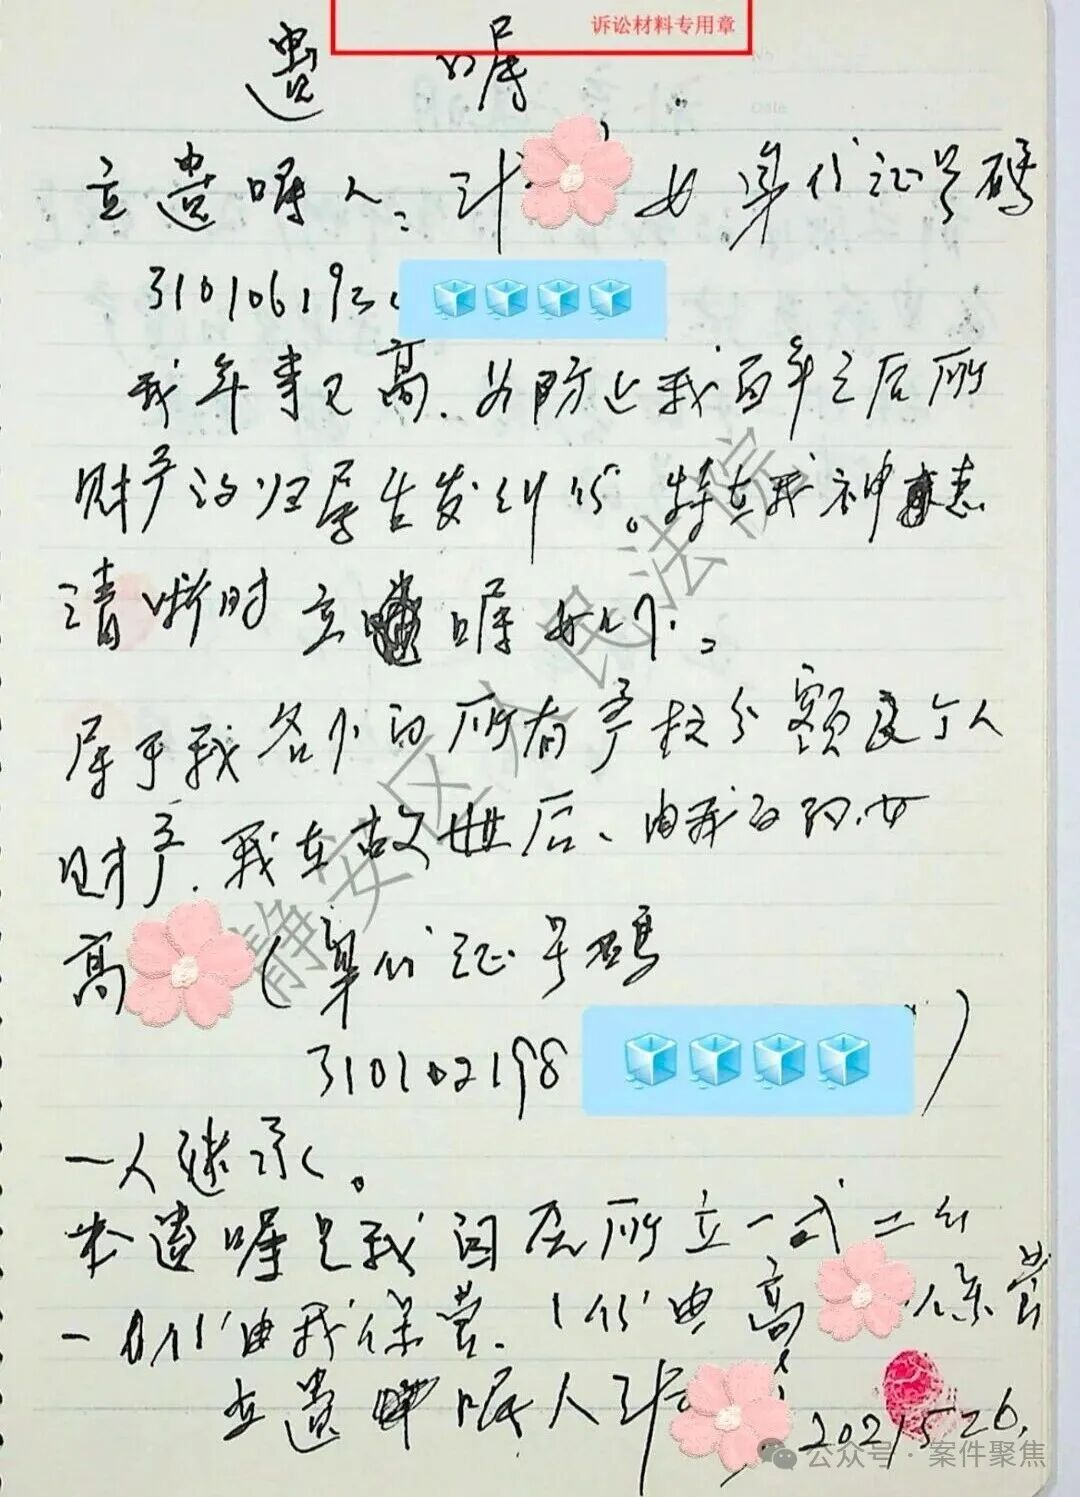 诉讼材料专用章
遗嘱
立遗嘱人：计 女 身份证号码
310106193
我年事已高、为防止我百年之后所
财产的归属生发纠纷。特在我神志
清晰时立遗嘱如下：
属于我名下的所有产权份额及个人
财产、我在故世后、由我的孙女
高 （身份证号码
310102198 ）
一人继承。
本遗嘱是我自愿所立一式二份
一份由我保管、1份由高 保管
立遗嘱人计 2021 5 26.
静安区人民法院
公众号·案件聚焦